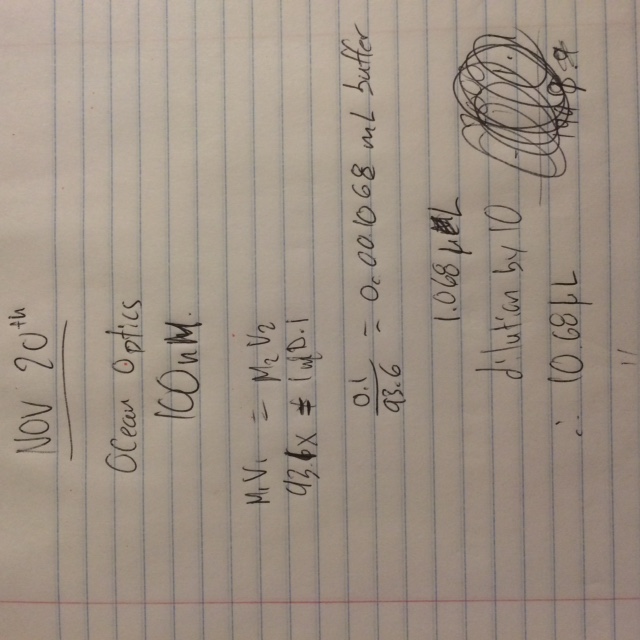 NOV 20th
Ocean Optics
100nM.
M1V1 = M2V2
93.6x = 0.1
0.1 = 0.001068 mL buffer
93.6
1.068 µL
dilution by 10
∴ 10.68µL